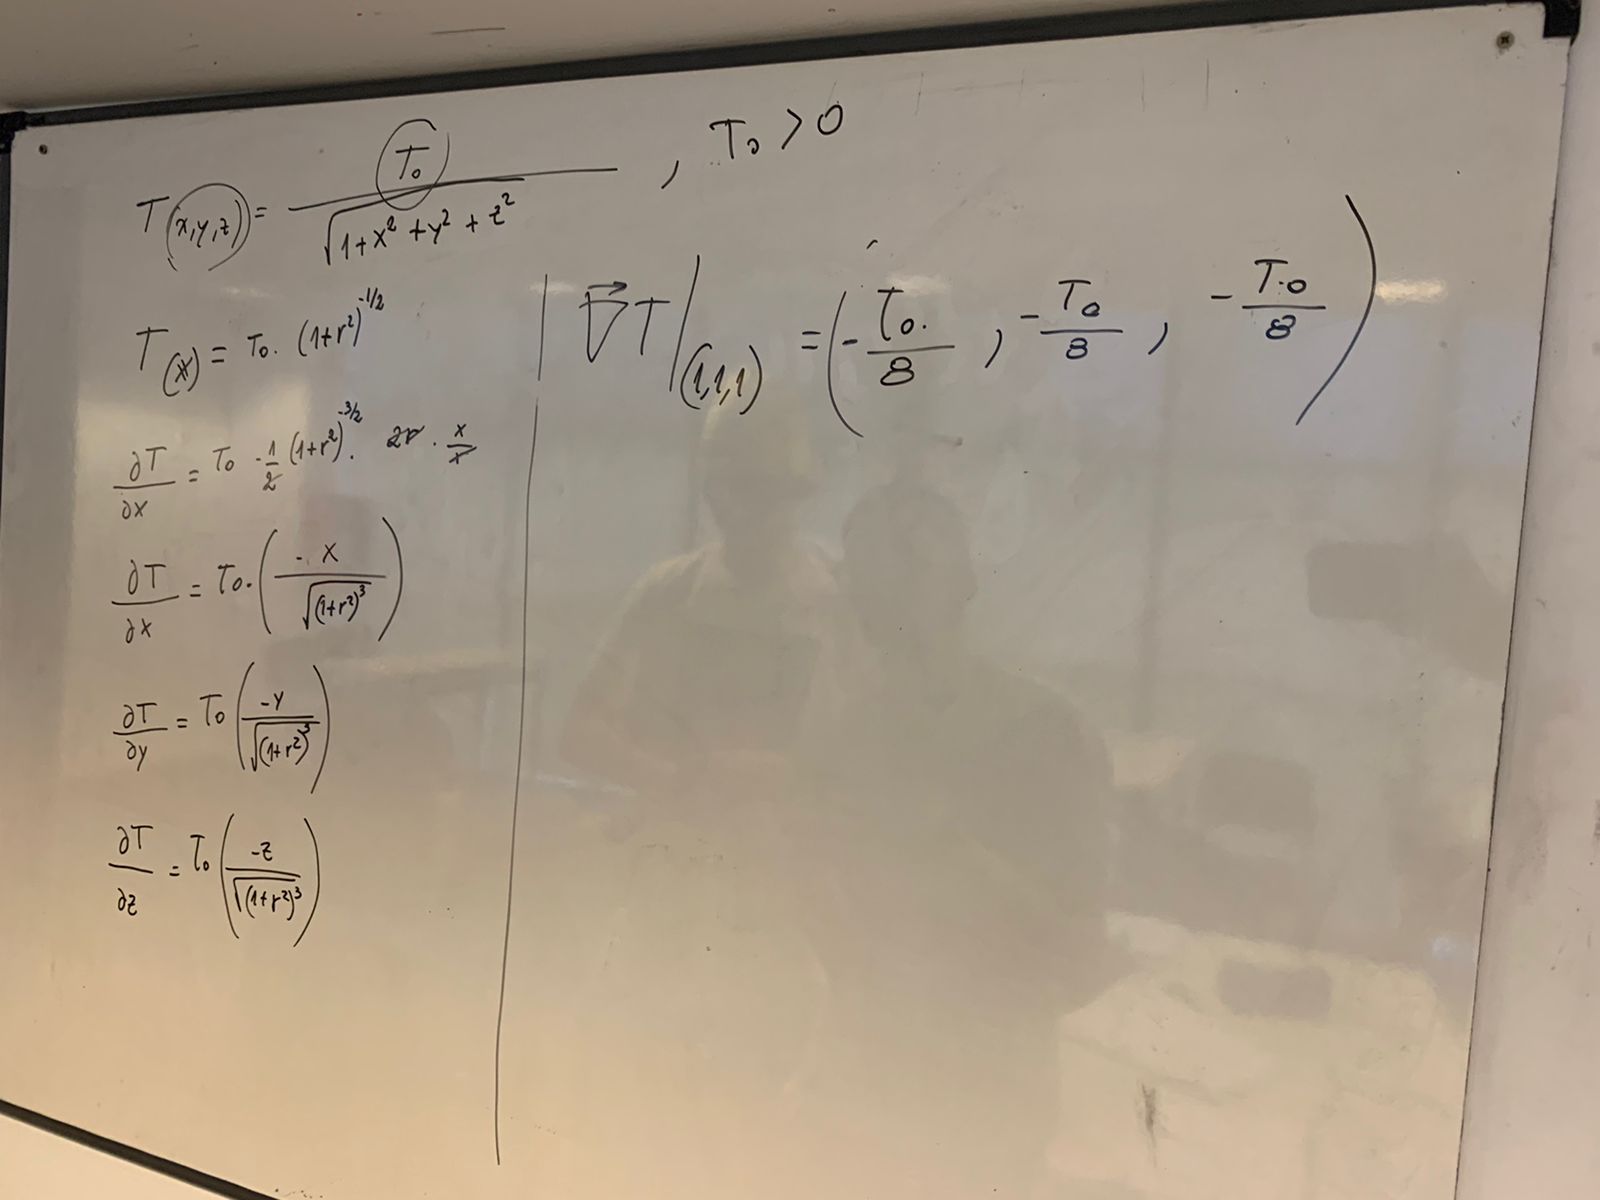 T(x,y,z) = T₀ / √(1+x²+y²+z²) , T₀ > 0
T(x) = T₀ · (1+r²)^(-1/2)
∂T/∂x = T₀ · -1/2 (1+r²)^(-3/2) · 2r · x/r
∂T/∂x = T₀ · (-x / √((1+r²)³))
∂T/∂y = T₀ (-y / √((1+r²)³))
∂T/∂z = T₀ (-z / √((1+r²)³))
∇⃗T|(1,1,1) = (-T₀/8 , -T₀/8 , -T₀/8)